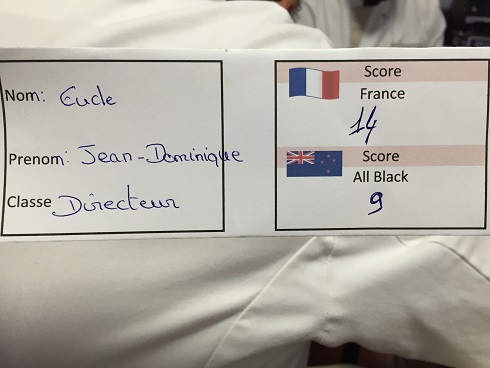 Nom: Eude
Prenom: Jean-Dominique
Classe Directeur
Score
France
14
Score
All Black
9